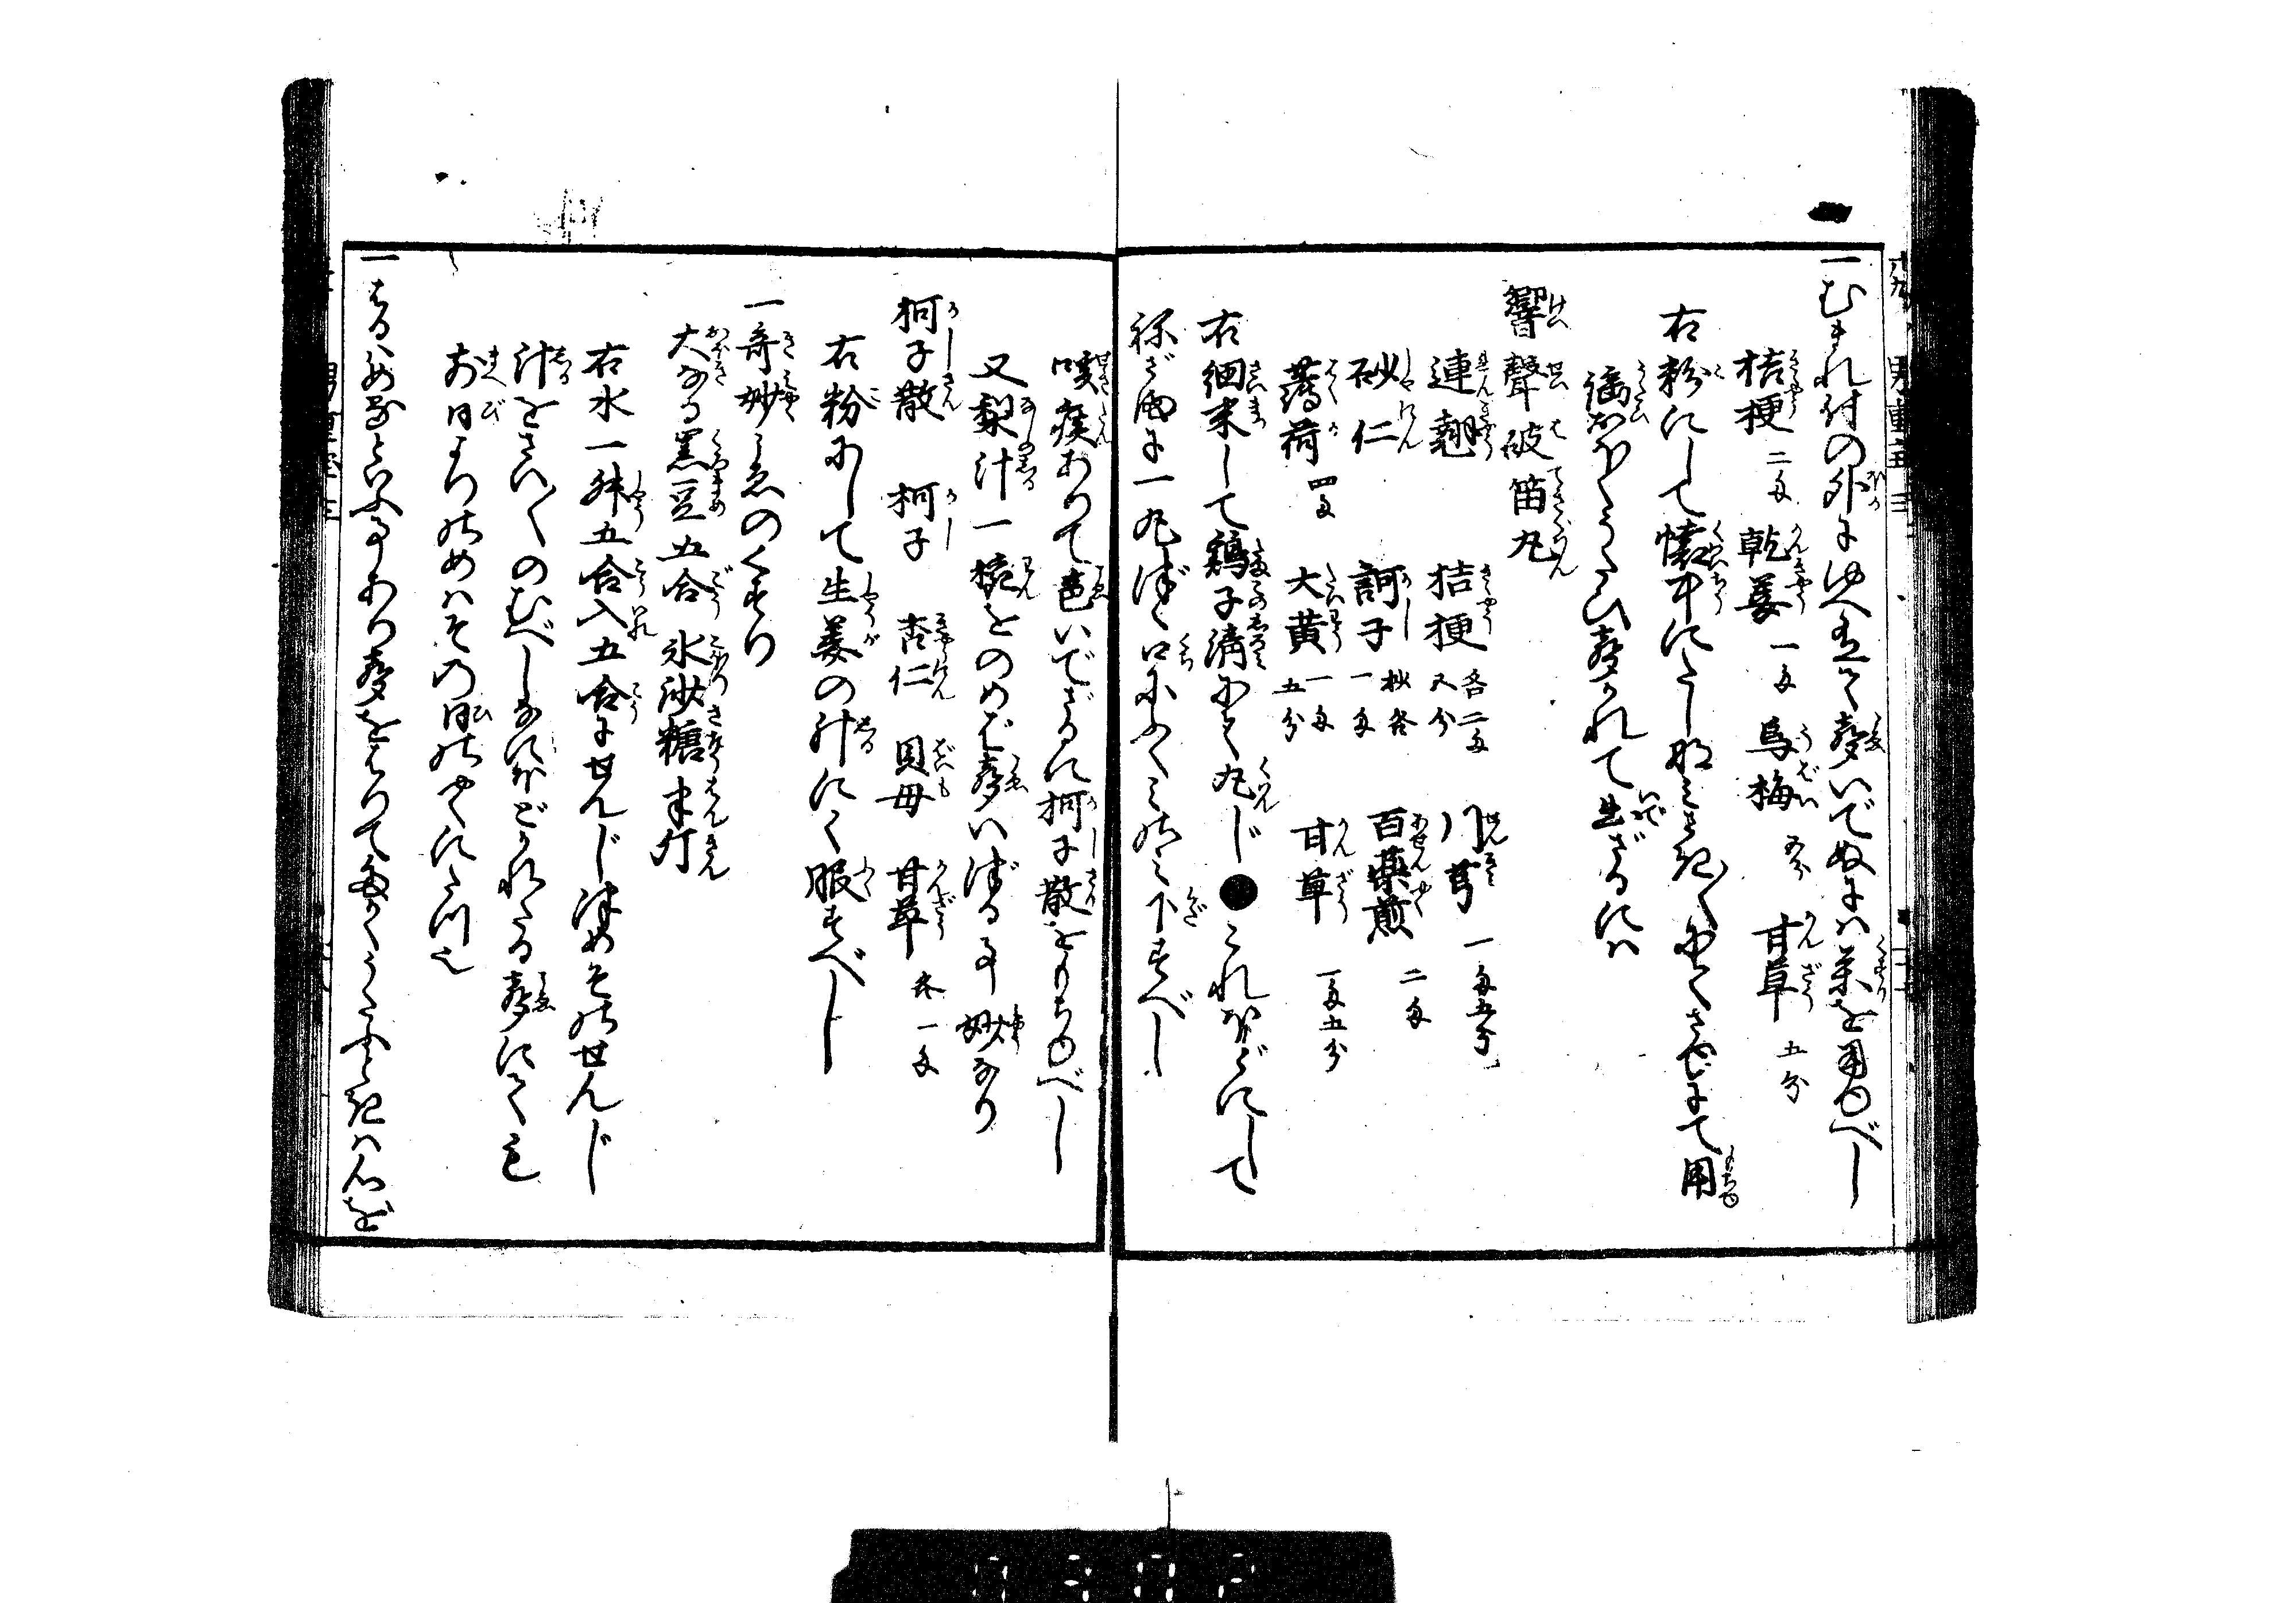 一むまれ付の外にゆへ有て声いでぬには薬を用ゆべし
桔梗 二匁 乾姜 一匁 烏梅 五分 甘草 五分
右粉にして懐中にたし
さゆにて用
謡おほくうたひ声かれて出ざるには
響聲破笛丸
連翹 桔梗 各二匁五分 川芎 一匁五分
砂仁 訶子 一匁 百薬煎 二匁
薄荷 四匁 大黄 一匁五分 甘草 一匁五分
右細末して鶏子清にて丸じ●これほどにして
ねざまに一丸づゝ口にふくみ 下すべし
咳痰ありて声いでざるに柯子散をもちゆべし
又梨汁一椀をのめば声いづる事妙なり
柯子散 柯子 杏仁 貝母 甘草 各一匁
右粉にして生姜の汁にて服すべし
一奇妙こゑのくすり
大なる黒豆五合 氷沙糖半斤
右水一舛五合入五合にせんじつめそのせんじ
汁をさい〳〵のむべし なにほどかれたる声にても
まへ日よりのめはその日のやくにたつ也
一 といふ事あり声を